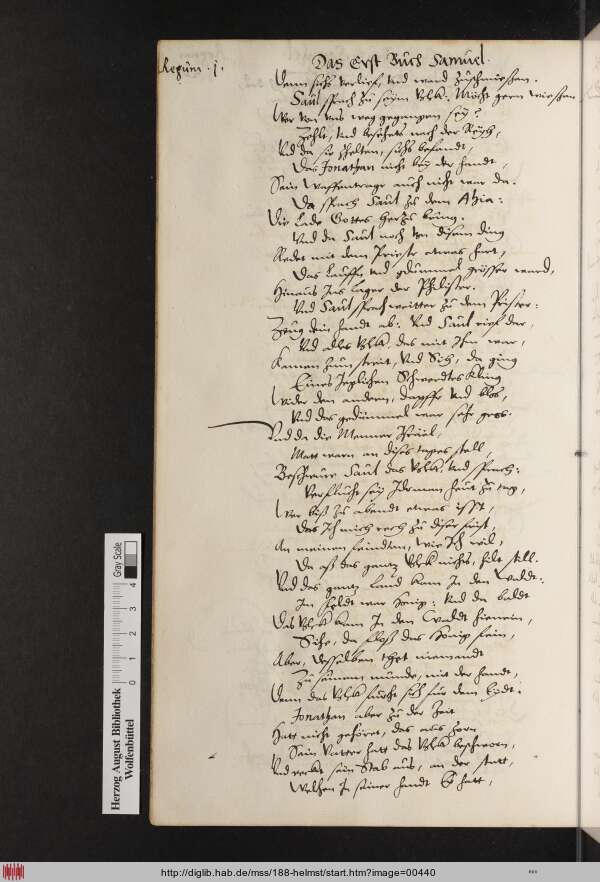 Regum. j.
Das Erst Buch Samuel.
Denn sichs verlief, und ward zuschmissen.
Saul sprach zu seym Volk: Möcht gern wissen
Wer von uns weg gegangen sey?
Zehlt, und besehets nach der Reyh,
Und da sie zhelten, sichs befandt,
Das Jonathan nicht bey der handt,
Sein Waffentrager auch nicht war da.
Da sprach Saul zu dem Ahia:
Die Lade Gottes herzu bring.
Und da Saul noch von disem ding
Redet mit dem Priester etwas hart,
Das lauffen und gdummel grösser ward,
Hinaus Ins lager der Philister.
Und Saul sprach weitter zu dem Prister:
Zeug dein handt ab: Und Saul rief dar,
Und alles Volk, das mit Ihm war,
Kamen zum streit, Und Sih, da ging
Eines Jeglichen Schwerdtes Kling
Wider den anderen, dapffer und blos,
Und das gedümmel war sehr gros.
Und da die Menner Israel,
Matt warn an dises tages stell,
Beschwur Saul das Volk, und sprach:
Verflucht sey Iderman heut zu tag,
Wer biß zu abendt etwas isst,
Das Ich mich rech zu diser frist,
An meinen feindten, wie Ich wil,
Da aß das gantz Volk nichts, hilt still.
Und das gantz Land kam In den Waldt:
Im Feldt war honig: Und da baldt
Das Volk kam In den Waldt hienein,
Sihe, da floß das honig fein,
Aber, desselben thet niemandt
Zu seinem munde, mit der handt,
Denn das Volk furcht sich fur dem Eydt.
Jonathan aber zu der Zeit
Hatt nicht gehöret, das aus Zorn
Sein Vatter hatt das Volk beschworn,
Und reckt sein Stab aus, an der statt,
Welchen In seiner handt Er hatt,
Herzog August Bibliothek
Wolfenbüttel
Gray Scale
0 1 2 3 4
http://diglib.hab.de/mss/188-helmst/start.htm?image=00440